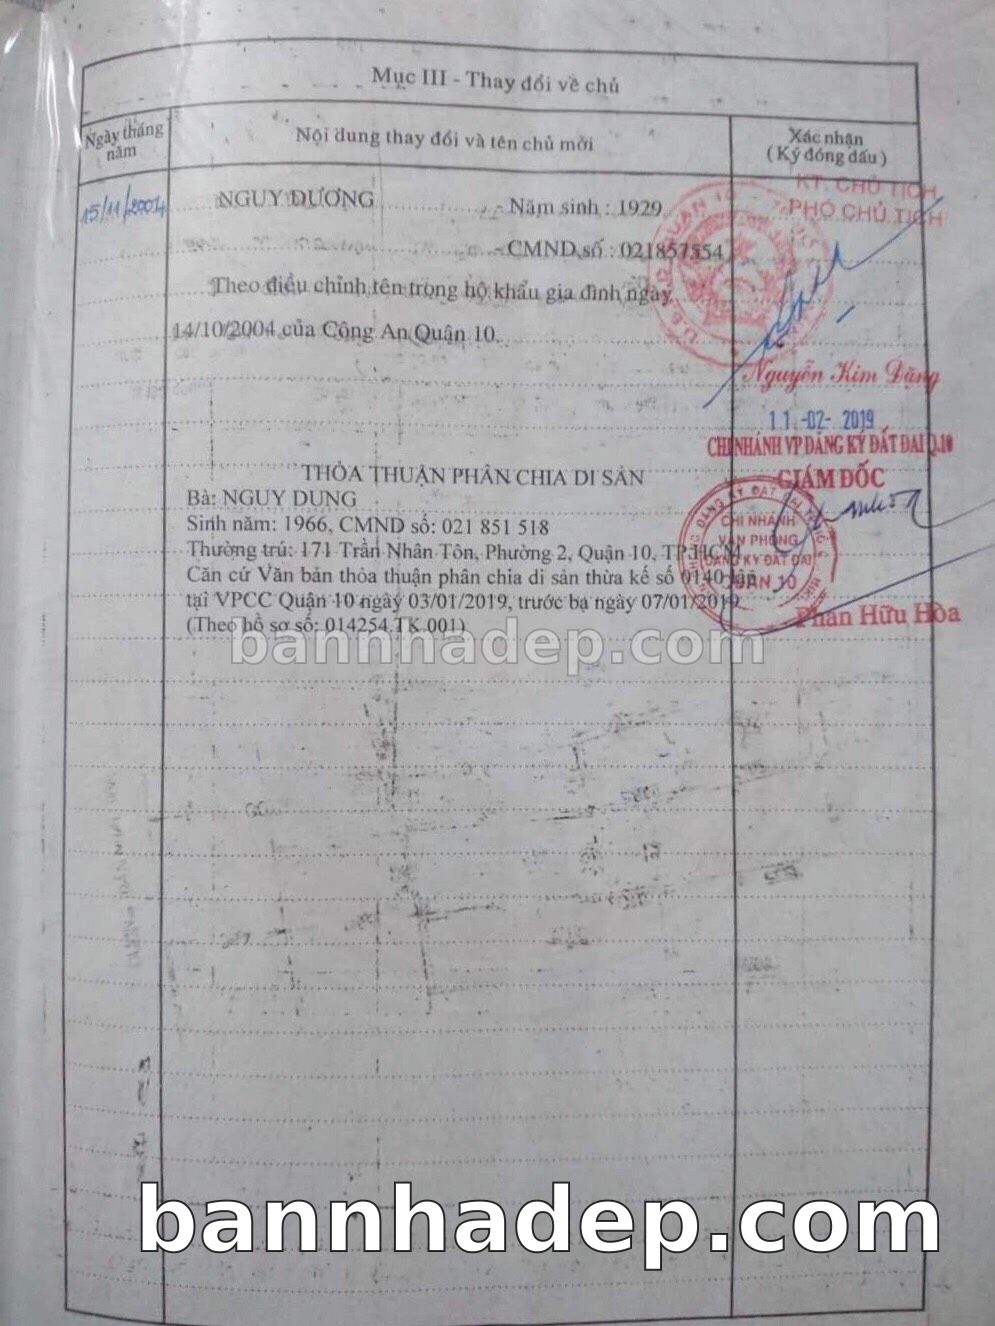 Mục III - Thay đổi về chủ
Ngày tháng năm
Nội dung thay đổi và tên chủ mới
Xác nhận
(Ký đóng dấu)
15/11/2004
NGUY DƯƠNG - Năm sinh : 1929
- CMND số : 021857554
Theo điều chỉnh tên trong hộ khẩu gia đình ngày
14/10/2004 của Công An Quận 10.
KT. CHỦ TỊCH
PHÓ CHỦ TỊCH
QUẬN 10
Nguyễn Kim Đặng
11 -02- 2019
CHI NHÁNH VP ĐĂNG KÝ ĐẤT ĐAI Q.10
GIÁM ĐỐC
THỎA THUẬN PHÂN CHIA DI SẢN
Bà: NGUY DUNG
Sinh năm: 1966, CMND số: 021 851 518
Thường trú: 171 Trần Nhân Tôn, Phường 2, Quận 10, TP.HCM
Căn cứ Văn bản thỏa thuận phân chia di sản thừa kế số 0140 lập
tại VPCC Quận 10 ngày 03/01/2019, trước bạ ngày 07/01/2019
(Theo hồ sơ số: 014254.TK.001)
CHI NHÁNH
VĂN PHÒNG
ĐĂNG KÝ ĐẤT ĐAI
QUẬN 10
Phan Hữu Hòa
bannhadep.com
bannhadep.com